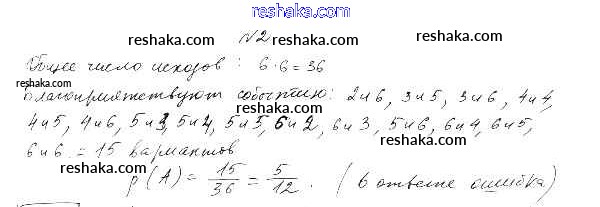 reshaka.com
№2
reshaka.com reshaka.com
Общее число исходов : 6·6=36
reshaka.com
Благоприятствуют событию: 2и6, 3и5, 3и6, 4и4,
reshaka.com
4и5, 4и6, 5и3, 5и4, 5и5, 6и2, 6и3, 5и6, 6и4, 6и5,
reshaka.com reshaka.com
6и6 = 15 вариантов
reshaka.com
p(A) = 15/36 = 5/12. (в ответе ошибка)
reshaka.com reshaka.com